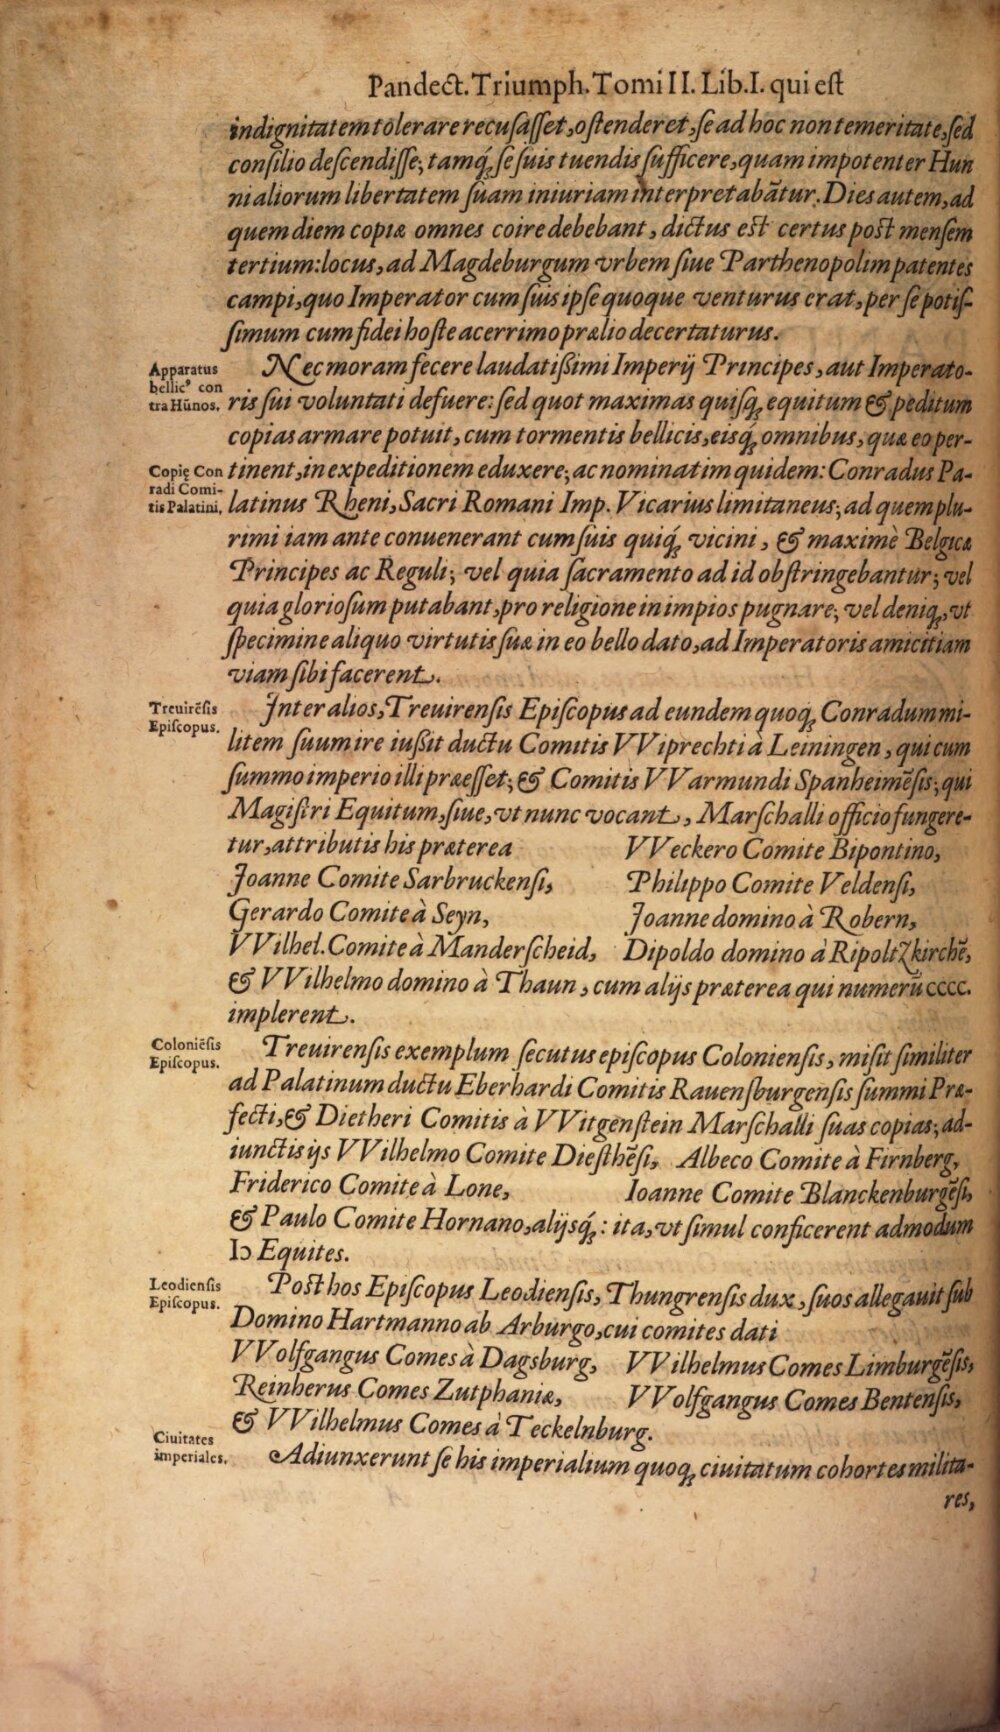 Pandect. Triumph. Tomi II. Lib. I. qui est
indignitatem tolerare recusaſſet, oſtenderet, ſe ad hoc non temeritate, ſed
conſilio deſcendiſſe; tamq́ꝫ ſe ſuis tuendis ſufficere, quam impotenter Hun
ni aliorum libertatem ſuam iniuriam interpretabātur. Dies autem, ad
quem diem copiæ omnes coire debebant, dictus eſt certus poſt menſem
tertium: locus, ad Magdeburgum vrbem ſiue Parthenopolim patentes
campi, quo Imperator cum ſuis ipſe quoque venturus erat, per ſe potiſ-
ſimum cum fidei hoſte acerrimo prælio decertaturus.
Apparatus
bellicꝰ con
tra Hūnos.
Nec moram fecere laudatißimi Imperij Principes, aut Imperato-
ris ſui voluntati defuere: ſed quot maximas quiſqꝫ equitum & peditum
copias armare potuit, cum tormentis bellicis, eisq́ꝫ omnibus, quæ eo per-
Copię Con
radi Comi-
tis Palatini.
tinent, in expeditionem eduxere; ac nominatim quidem: Conradus Pa-
latinus Rheni, Sacri Romani Imp. Vicarius limitaneus; ad quem plu-
rimi iam ante conuenerant cum ſuis quiq́ꝫ vicini, & maximè Belgicæ
Principes ac Reguli; vel quia ſacramento ad id obſtringebantur; vel
quia glorioſum putabant, pro religione in impios pugnare; vel deniqꝫ, vt
ſpecimine aliquo virtutis ſuæ in eo bello dato, ad Imperatoris amicitiam
viam ſibi facerent.
Treuirēſis
Epiſcopus.
Inter alios, Treuirenſis Epiſcopus ad eundem quoqꝫ Conradum mi-
litem ſuum ire iußit ductu Comitis VViprechti à Leiningen, qui cum
ſummo imperio illi præeſſet; & Comitis VVarmundi Spanheimēſis; qui
Magiſtri Equitum, ſiue, vt nunc vocant, Marſchalli officio fungere-
tur, attributis his præterea VVeckero Comite Bipontino,
Joanne Comite Sarbruckenſi, Philippo Comite Veldenſi,
Gerardo Comite à Seyn, Joanne domino à Robern,
VVilhel. Comite à Manderſcheid, Dipoldo domino à Ripoltzkirchē,
& VVilhelmo domino à Thaun, cum alijs præterea qui numerū cccc.
implerent.
Coloniēſis
Epiſcopus.
Treuirenſis exemplum ſecutus epiſcopus Colonienſis, miſit ſimiliter
ad Palatinum ductu Eberhardi Comitis Rauenſburgenſis ſummi Præ-
fecti, & Dietheri Comitis à VVitgenſtein Marſchalli ſuas copias; ad-
iunctis ijs VVilhelmo Comite Dieſthēſi, Albeco Comite à Firnberg,
Friderico Comite à Lone, Ioanne Comite Blanckenburgēſi,
& Paulo Comite Hornano, alijsq́ꝫ: ita, vt ſimul conficerent admodum
IↃ Equites.
Leodienſis
Epiſcopus.
Poſt hos Epiſcopus Leodienſis, Thungrenſis dux, ſuos allegauit ſub
Domino Hartmanno ab Arburgo, cui comites dati
VVolfgangus Comes à Dagsburg, VVilhelmus Comes Limburgēſis,
Reinherus Comes Zutphaniæ, VVolfgangus Comes Bentenſis,
& VVilhelmus Comes à Teckelnburg.
Ciuitates
imperiales.
Adiunxerunt ſe his imperialium quoqꝫ ciuitatum cohortes milita-
res,